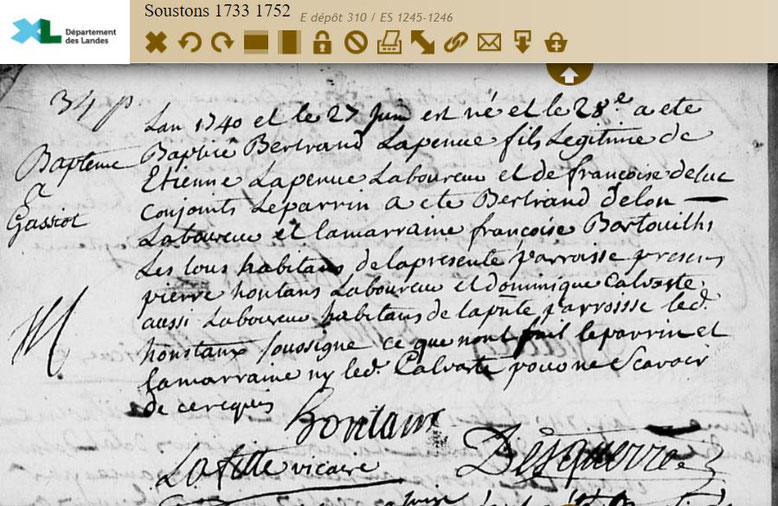 Département
des Landes
Soustons 1733 1752
E dépôt 310 / ES 1245-1246
34 p
Lan 1740 et le 27 Juin est né et le 28e a ete
Bapteme
a
Gassiot
Baptisé Bertrand Lapenue fils Legitime de
Etienne Lapenue Laboureur et de francoise deluc
Conjoints Leparrin a ete Bertrand Delon
Laboureur et lamarraine francoise Bartouilhs
Les tous habitans de lapresente parroisse presens
pierre hontans Laboureur et dominique Calvaste
aussi Laboureur habitans de lapnte parroisse led.
honstaux soussigne ce que nont fait leparrin et
lamarraine ny led. Calvaste pour ne Scavoir
de ce requis
hontaux
Lafitte vicaire
Desquerre